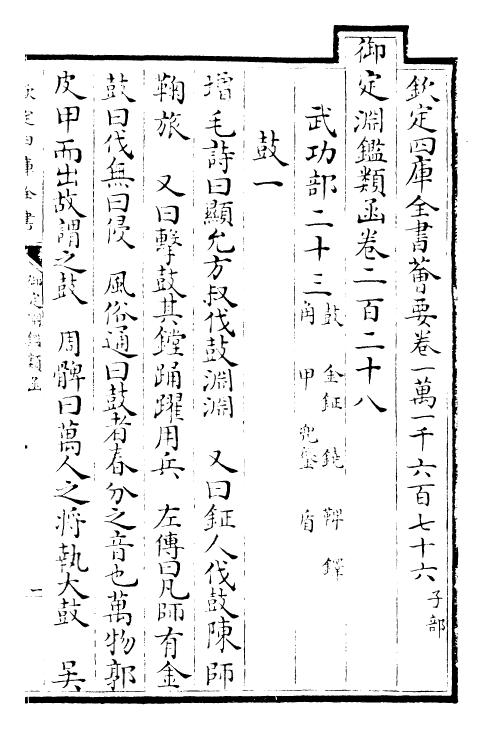 欽定四庫全書薈要卷一萬一千六百七十六 子部
御定淵鑑類函卷二百二十八
武功部二十三 鼓 金鉦 鐃 鞞 鐸
角 甲 兜鍪 盾
鼓一
增毛詩曰顯允方叔伐鼓淵淵 又曰鉦人伐鼓陳師
鞠旅 又曰擊鼓其鏜踊躍用兵 左傳曰凡師有金
鼓曰伐無曰侵 風俗通曰鼓者春分之音也萬物郭
皮甲而出故謂之鼓 周髀曰萬人之將執大鼓 吳
欽定四庫全書
御定淵鑑類函
一